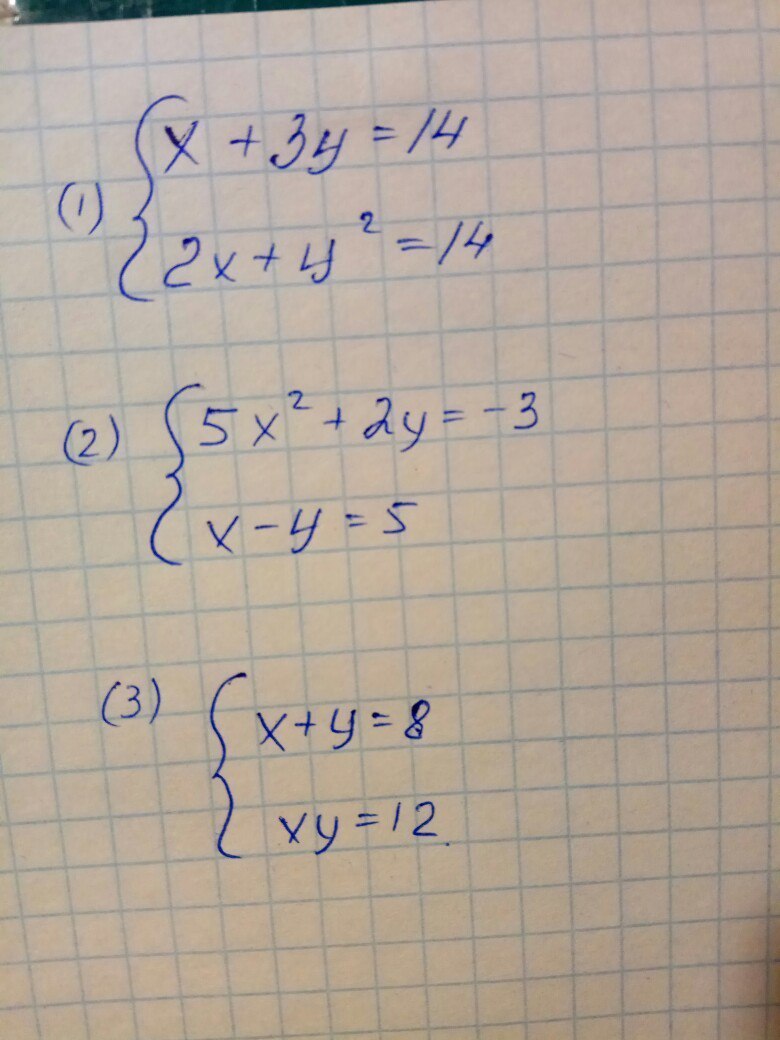 (1) { x + 3y = 14
2x + y² = 14
(2) { 5x² + 2y = -3
x - y = 5
(3) { x + y = 8
xy = 12.